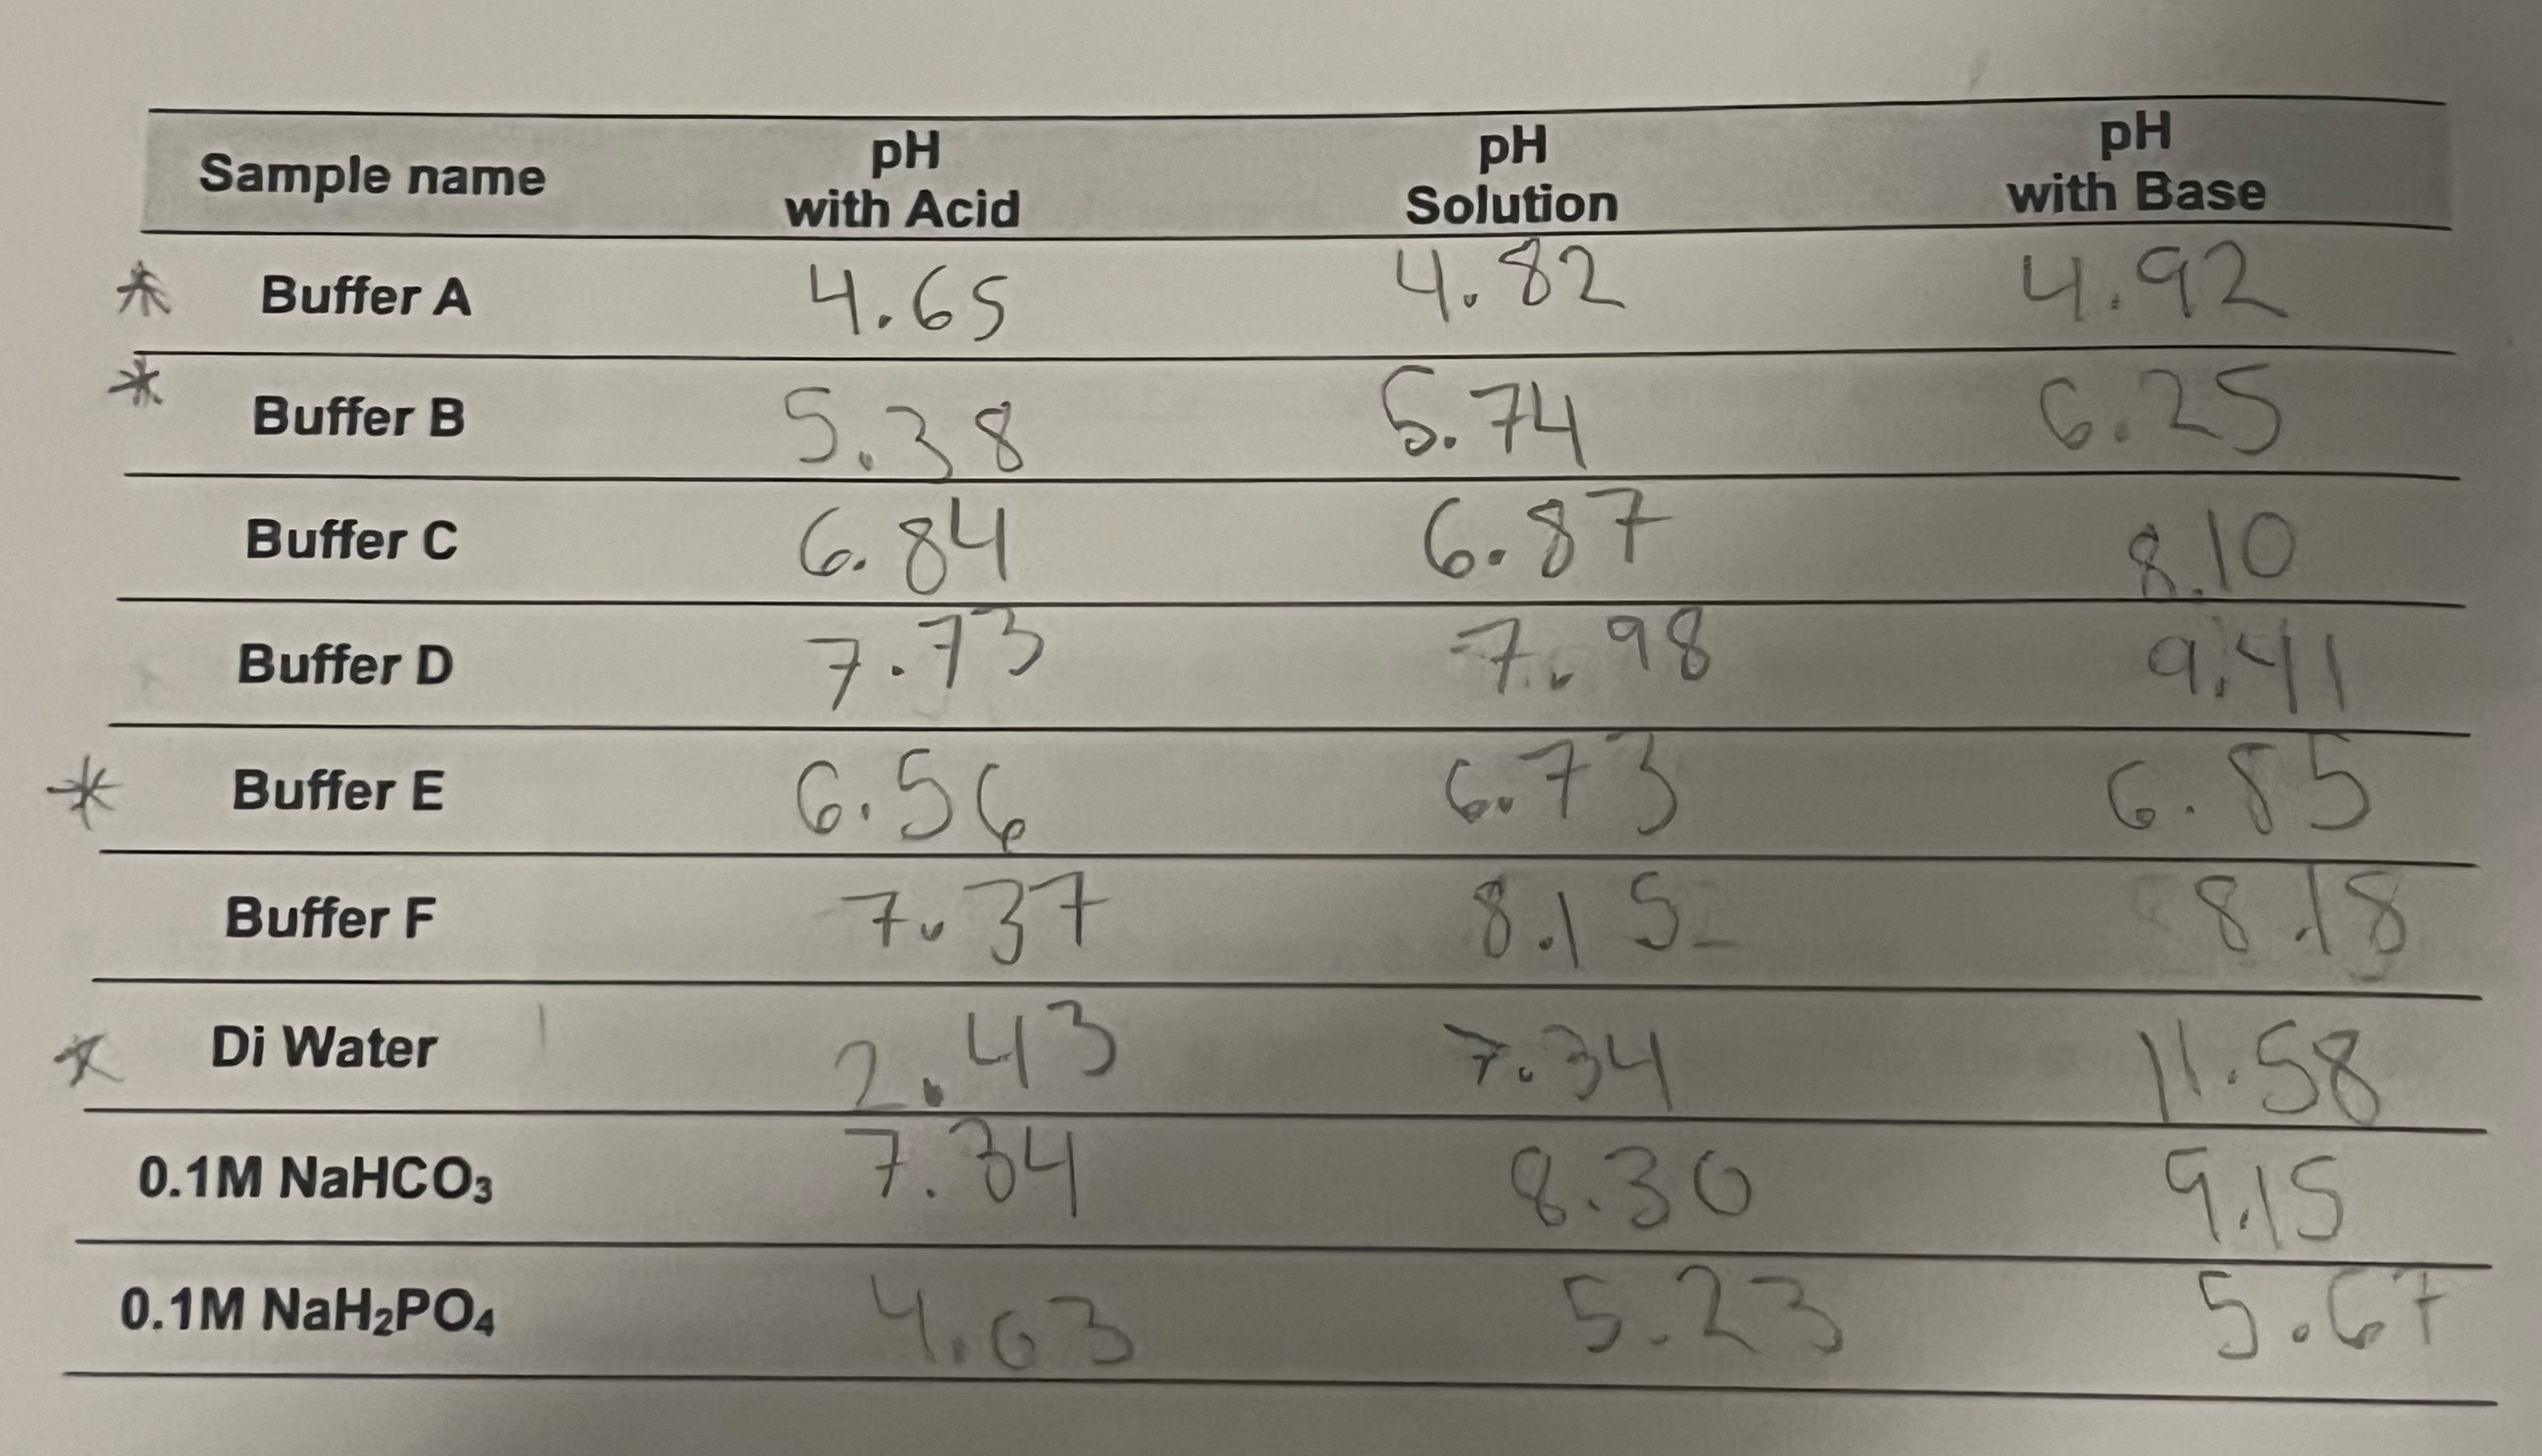 Sample name pH with Acid pH Solution pH with Base
* Buffer A 4.65 4.82 4.92
* Buffer B 5.38 5.74 6.25
Buffer C 6.84 6.87 8.10
Buffer D 7.73 7.98 9.41
* Buffer E 6.56 6.73 6.85
Buffer F 7.37 8.15 8.18
* Di Water 2.43 7.34 11.58
0.1M NaHCO₃ 7.34 8.30 9.15
0.1M NaH₂PO₄ 4.03 5.23 5.67